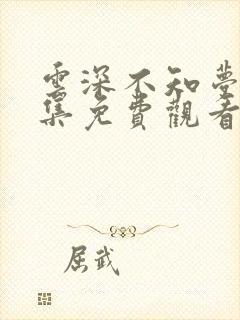 雲深不知夢
集免費觀看
屈武